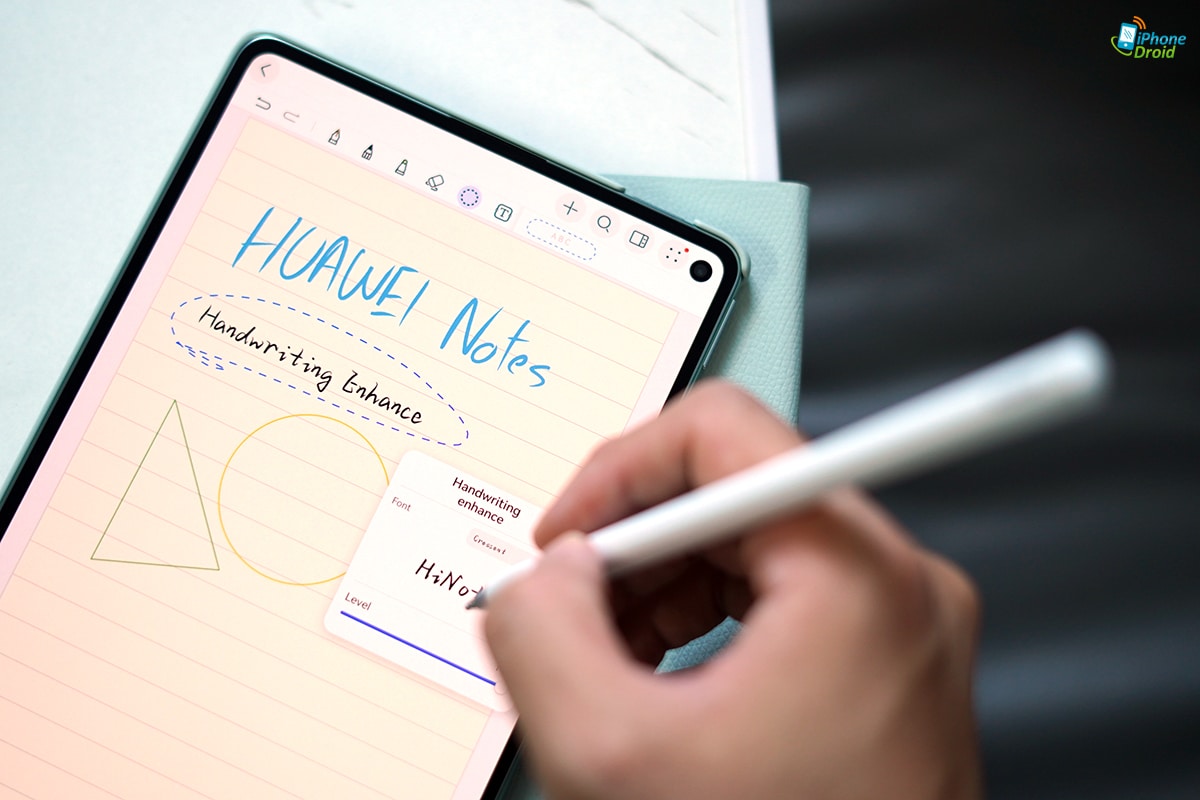 iPhone
Droid
T
ABC
HUAWEI Notes
Handwriting Enhance
Handwriting
enhance
Font
Crossout
Level